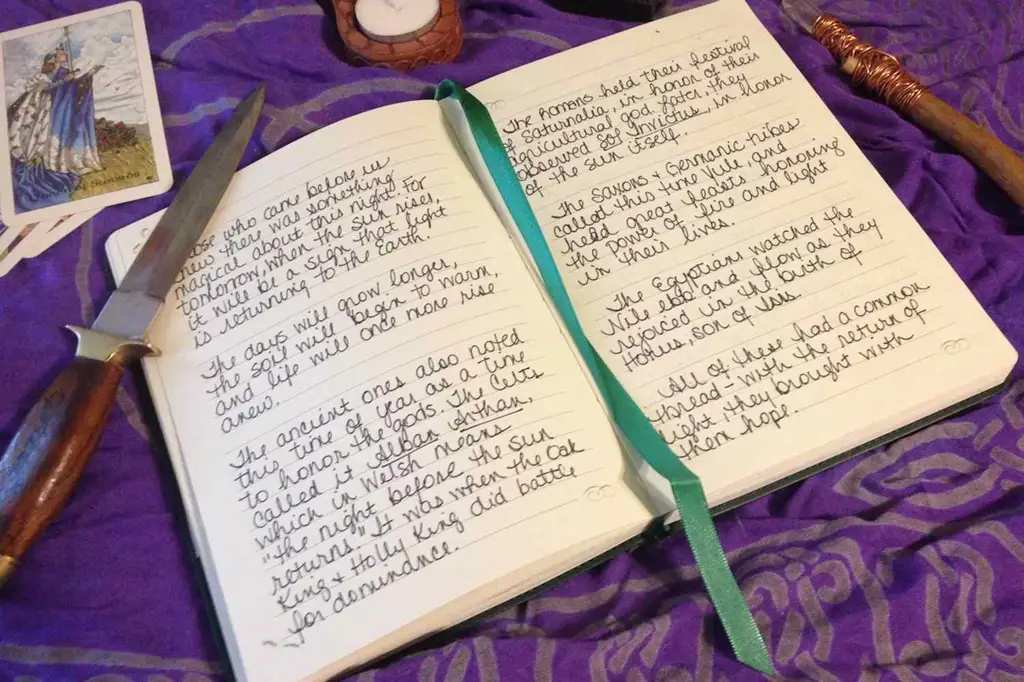 those who came before us
knew there was something
magical about this night. For
tomorrow, when the sun rises,
it will be a sign that light
is returning to the Earth.
The days will grow longer,
the soil will begin to warm,
and life will once more rise
anew.
The ancient ones also noted
this time of year as a time
to honor the gods. The Celts
called it Alban Arthan,
which in Welsh means
"the night before the Sun
returns." It was when the Oak
King & Holly King did battle
for dominance.
The Romans held their festival
of Saturnalia, in honor of their
agricultural god. Later, they
observed Sol Invictus, in honor
of the sun itself.
The Saxons & Germanic tribes
called this time Yule, and
held great feasts honoring
the power of fire and light
in their lives.
The Egyptians watched the
Nile ebb and flow as they
rejoiced in the birth of
Horus, son of Isis.
All of these had a common
thread - with the return of
light, they brought with
them hope.